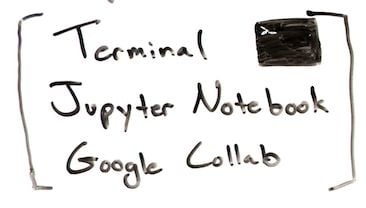 Terminal
Jupyter Notebook
Google Collab